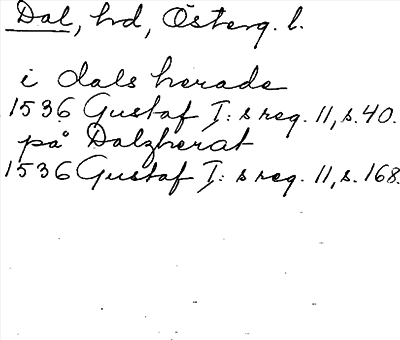 Dal, hd, Österg. l.
i dals herade
1536 Gustaf I:s reg. 11, s. 40.
på Dalzherat
1536 Gustaf I:s reg. 11, s. 168.